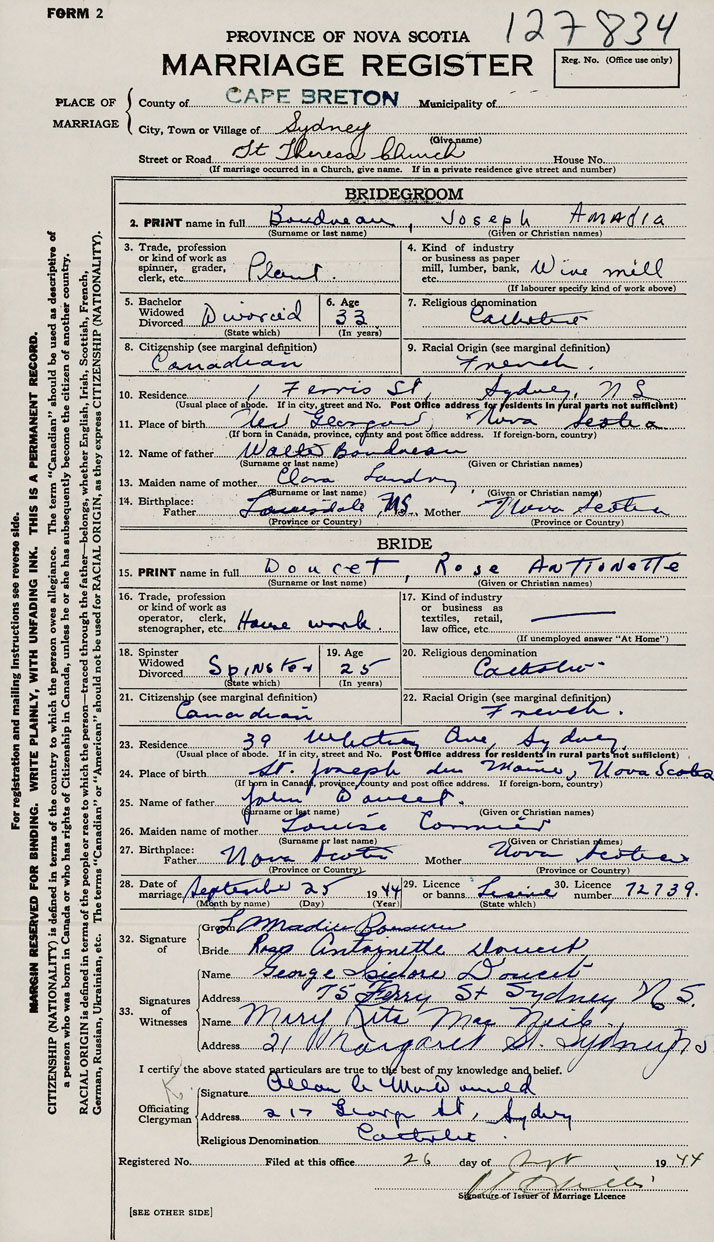 FORM 2
127834
PROVINCE OF NOVA SCOTIA
MARRIAGE REGISTER
Reg. No. (Office use only)
PLACE OF MARRIAGE
County of CAPE BRETON Municipality of
City, Town or Village of Sydney
(Give name)
Street or Road St Theresa Church House No.
(If marriage occurred in a Church, give name. If in a private residence give street and number)
BRIDEGROOM
2. PRINT name in full Boudreau, Joseph Amadia
(Surname or last name) (Given or Christian names)
3. Trade, profession or kind of work as spinner, grader, clerk, etc. Plant.
4. Kind of industry or business as paper mill, lumber, bank, etc. Wire mill
(If labourer specify kind of work above)
5. Bachelor Widowed Divorced Divorced
(State which)
6. Age 33
(In years)
7. Religious denomination Catholic
8. Citizenship (see marginal definition) Canadian
9. Racial Origin (see marginal definition) French.
10. Residence 1 Ferris St, Sydney, N S
(Usual place of abode. If in city, street and No. Post Office address for residents in rural parts not sufficient)
11. Place of birth Nova Scotia
(If born in Canada, province, county and post office address. If foreign-born, country)
12. Name of father Walter Boudreau
(Surname or last name) (Given or Christian names)
13. Maiden name of mother Clara Landry
(Surname or last name) (Given or Christian names)
14. Birthplace: Father NS. Mother Nova Scotia
(Province or Country) (Province or Country)
BRIDE
15. PRINT name in full Doucet, Rose Anttonette
(Surname or last name) (Given or Christian names)
16. Trade, profession or kind of work as operator, clerk, stenographer, etc. House work.
17. Kind of industry or business as textiles, retail, law office, etc. —
(If unemployed answer "At Home")
18. Spinster Widowed Divorced Spinster
(State which)
19. Age 25
(In years)
20. Religious denomination Catholic
21. Citizenship (see marginal definition) Canadian
22. Racial Origin (see marginal definition) French.
23. Residence 39 Whitney Ave, Sydney.
(Usual place of abode. If in city, street and No. Post Office address for residents in rural parts not sufficient)
24. Place of birth St Joseph du Maine, Nova Scotia
(If born in Canada, province, county and post office address. If foreign-born, country)
25. Name of father John Doucet.
(Surname or last name) (Given or Christian names)
26. Maiden name of mother Louise Cormier
(Surname or last name) (Given or Christian names)
27. Birthplace: Father Nova Scotia Mother Nova Scotia
(Province or Country) (Province or Country)
28. Date of marriage September 25 1944
(Month by name) (Day) (Year)
29. Licence or banns License
(State which)
30. Licence number 72739.
32. Signature of
Groom
Bride Rose Antoinette Doucet
33. Signatures of Witnesses
Name George Isidore Doucet
Address 75 Ferry St Sydney N. S.
Name Mary Rita Mac Neil.
Address 21 Margaret St. Sydney NS
I certify the above stated particulars are true to the best of my knowledge and belief.
Officiating Clergyman
Signature Allan MacDonald
Address 217 George St, Sydney
Religious Denomination Catholic.
Registered No. Filed at this office 26 day of Sept 1944
Signature of Issuer of Marriage Licence
[SEE OTHER SIDE]
For registration and mailing instructions see reverse side.
MARGIN RESERVED FOR BINDING. WRITE PLAINLY, WITH UNFADING INK. THIS IS A PERMANENT RECORD.
CITIZENSHIP (NATIONALITY) is defined in terms of the country to which the person owes allegiance. The term "Canadian" should be used as descriptive of
a person who was born in Canada or who has rights of Citizenship in Canada, unless he or she has subsequently become the citizen of another country.
RACIAL ORIGIN is defined in terms of the people or race to which the person—traced through the father—belongs, whether English, Irish, Scottish, French,
German, Russian, Ukrainian, etc. The terms "Canadian" or "American" should not be used for RACIAL ORIGIN, as they express CITIZENSHIP (NATIONALITY).